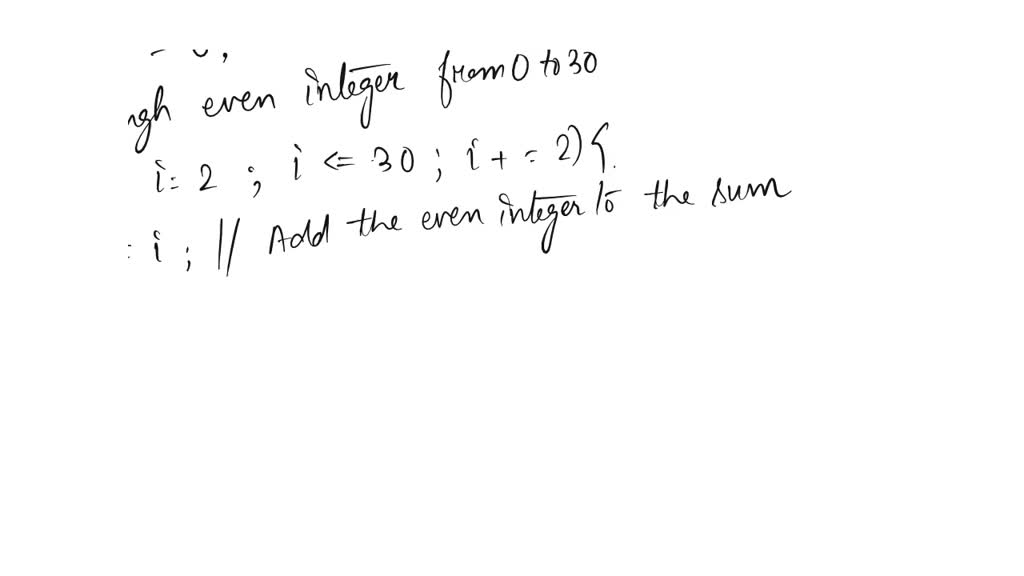 ugh even integer from 0 to 30
i = 2 ; i <= 30 ; i += 2) {
= i ; // Add the even integer to the sum